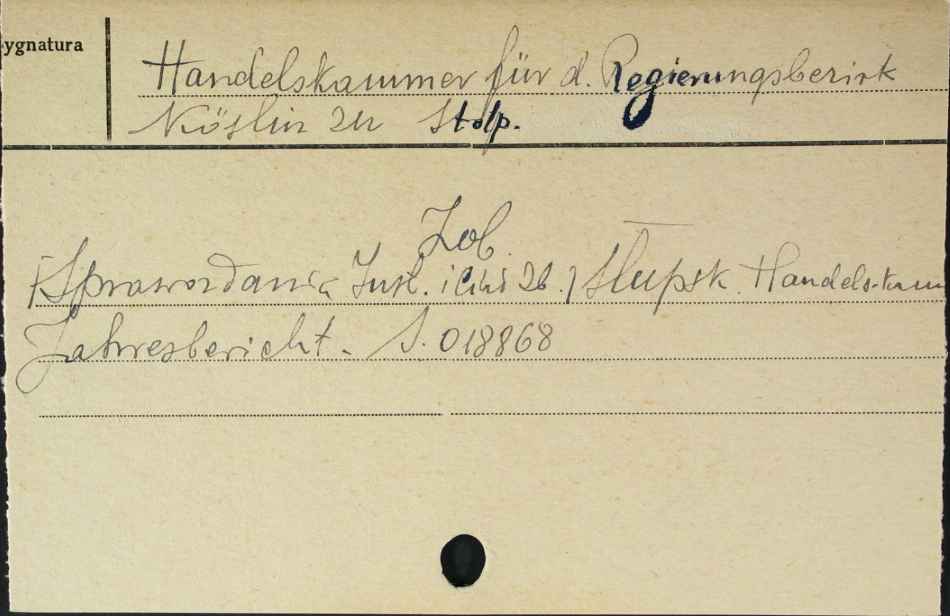 ygnatura
Handelskammer für d. Regierungsbezirk
Köslin zu Stolp.
Zob.
[Sprawozdania Inst. i Zb.] Słupsk Handelskam
Jahresbericht. S. 018868